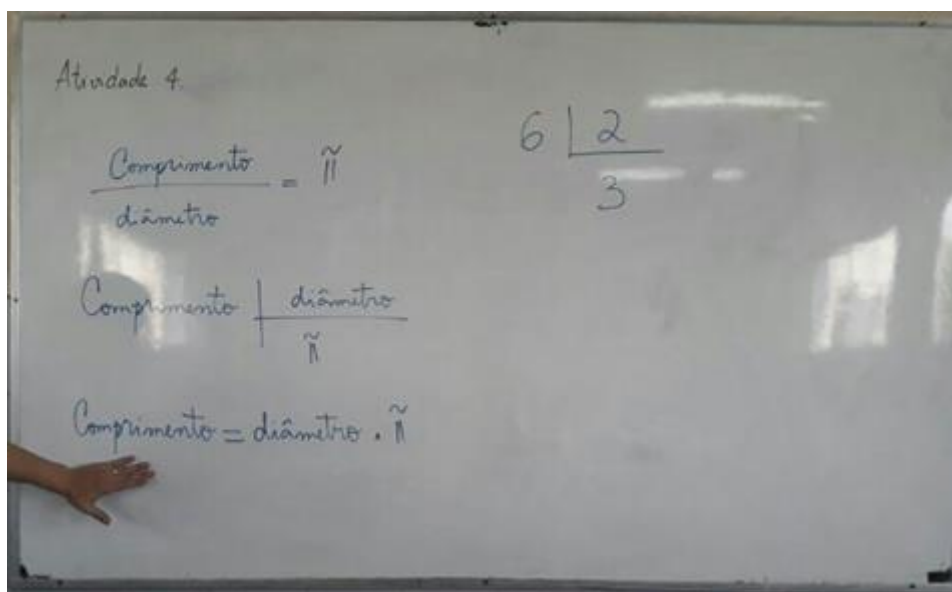 Atividade 4.
Comprimento
diâmetro
= π
Comprimento | diâmetro
π
Comprimento = diâmetro . π
6 | 2
3